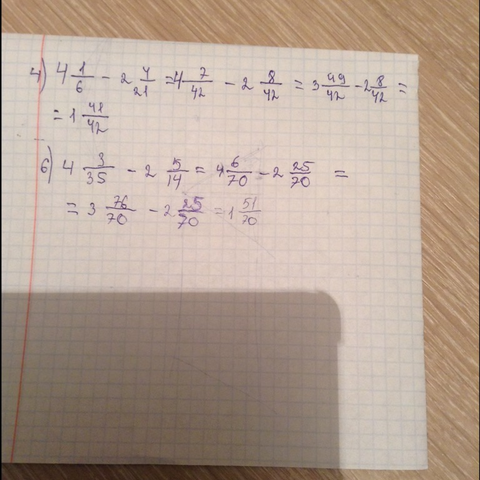 4) 4 1/6 - 2 4/21 = 4 7/42 - 2 8/42 = 3 49/42 - 2 8/42 =
= 1 41/42
6) 4 3/35 - 2 5/14 = 4 6/70 - 2 25/70 =
= 3 76/70 - 2 25/70 = 1 51/70